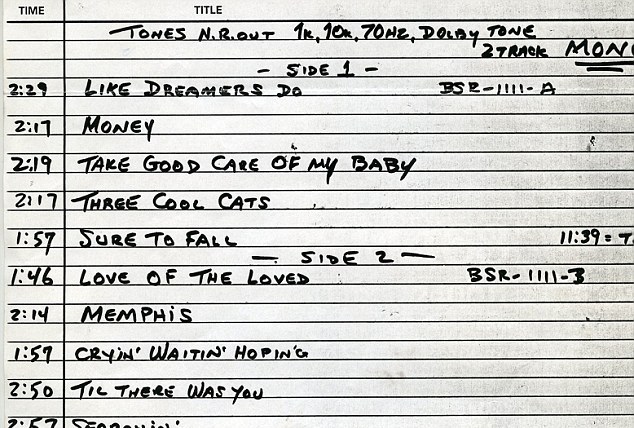 TIME TITLE
TONES N.R.OUT 1K, 10K, 70HZ, DOLBY TONE
2 TRACK MONO
— SIDE 1 —
2:29 LIKE DREAMERS DO BSR-1111-A
2:17 MONEY
2:19 TAKE GOOD CARE OF MY BABY
2:17 THREE COOL CATS
1:57 SURE TO FALL 11:39 = T
— SIDE 2 —
1:46 LOVE OF THE LOVED BSR-1111-B
2:14 MEMPHIS
1:57 CRYIN' WAITIN' HOPING
2:50 TIL THERE WAS YOU
2:57 SEARCHIN'